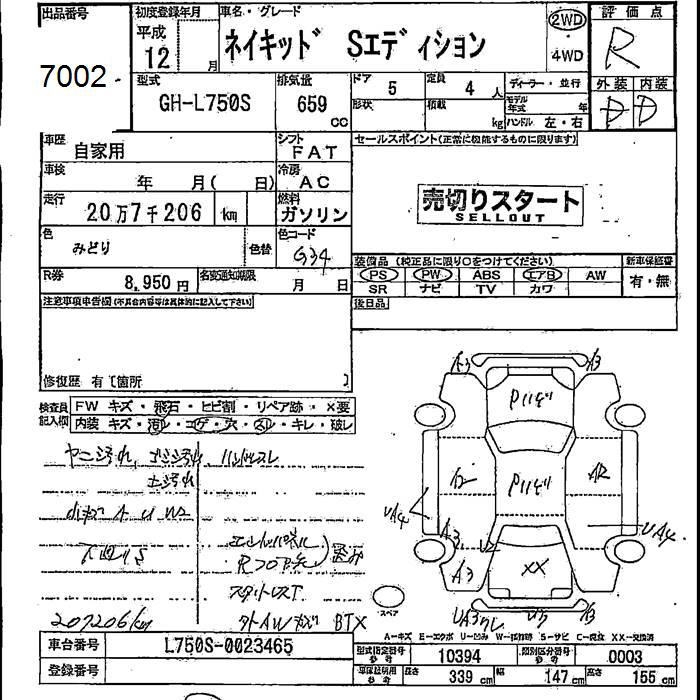 出品番号
7002
初度登録年月
平成
12 月
車名・グレード
ネイキッド Sエディション
2WD
4WD
評価点
R
外装 内装
D D
型式
GH-L750S
排気量
659 CC
ドア
5
定員
4 人
形状
積載
kg
ディーラー・並行
モデル年式 年
ハンドル 左・右
車歴
自家用
シフト
FAT
車検
年 月( 日)
冷房
AC
走行
20万7千206 km
燃料
ガソリン
色
みどり
色替
色コード
G34
R券
8,950円
名変通知期限
月 日
セールスポイント(正常に機能するものに限ります)
売切りスタート
SELLOUT
装備品(純正品に限り○をつけてください)
新車保証書
PS PW ABS エアB AW
SR ナビ TV カワ
有・無
後日品
注意事項申告欄(不具合内容等は具体的に記入して下さい)
修復歴 有〔箇所 〕
検査員記入欄
FW キズ・飛石・ヒビ割・リペア跡・×要
内装 キズ・汚レ・コゲ・穴・スレ・キレ・破レ
ヤニ汚れ ハンドルスレ
土汚れ
207206km
BTX
A3
A3
A2
UA4
UA4
A3
A3
U2
XX
A3
スペア
A-キズ E-エクボ U-凹み S-サビ XX-交換済
車台番号
L750S-0023465
登録番号
型式指定番号 参考
10394
類別区分番号 参考
0003
車庫証明用 参考
長さ 339 cm
幅 147 cm
高さ 155 cm